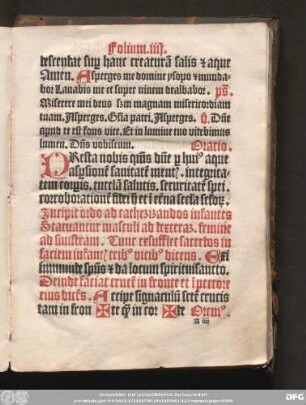 Folium.iiij.
descendat sup hanc creaturā salis ⁊ aque
Amen. Asperges me domine ysopo ⁊ munda
bor Lauabis me et super niuem dealbabor. ps̄.
Miserere mei deus scdm magnam misericordiam
tuam. Asperges. Gl̄ia patri. Asperges. V̄. Dn̄e
apud te est fons vite. Et in lumine tuo videbimus
lumen. Dn̄s vobiscum. Oratio.
PResta nobis qs̄ dn̄e p hui⁹ aque
aspersionē sanitatē mentꝭ. integrita
tem corpis. tutelā salutis. securitatē spei.
corroborationē fidei h et ī eterna secla sclorꝫ.
Incipit ordo ad cathezizandos infantes
Statuantur masculi ad dexterā. femine
ad sinistram. Tunc exsufflet sacerdos in
faciem infantꝭ trib⁹ vicib⁹ dicens. Exi
immunde spūs ⁊ da locum spirituisancto.
Deinde faciat crucē in fronte et ī pectore
ter dicēs. Accipe signaculū scē crucis
tam in fron ✠ te qͣ in cor ✠ de Orem⁹.
A iiij
DFG